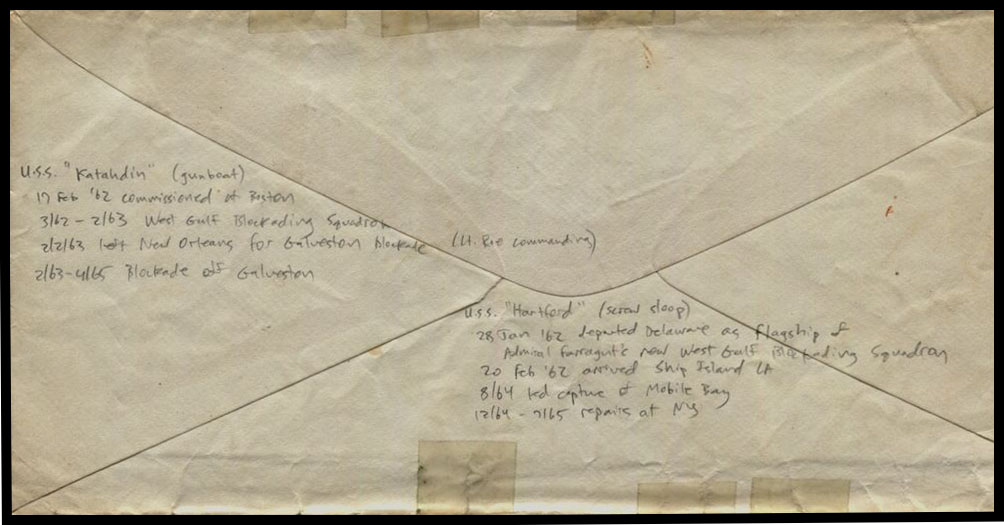 U.S.S. "Katahdin" (gunboat)
17 Feb '62 commissioned at Boston
3/62 - 2/63 West Gulf Blockading Squadron
2/2/63 left New Orleans for Galveston blockade (Lt. Roe commanding)
2/63-4/65 Blockade off Galveston
U.S.S. "Hartford" (screw sloop)
28 Jan '62 departed Delaware as flagship of
Admiral Farragut's new West Gulf Blockading Squadron
20 Feb '62 arrived Ship Island LA
8/64 led capture of Mobile Bay
12/64 - 7/65 repairs at NY